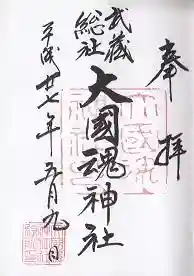 奉拝
武蔵
総社
大國魂神社
平成廿七年五月九日